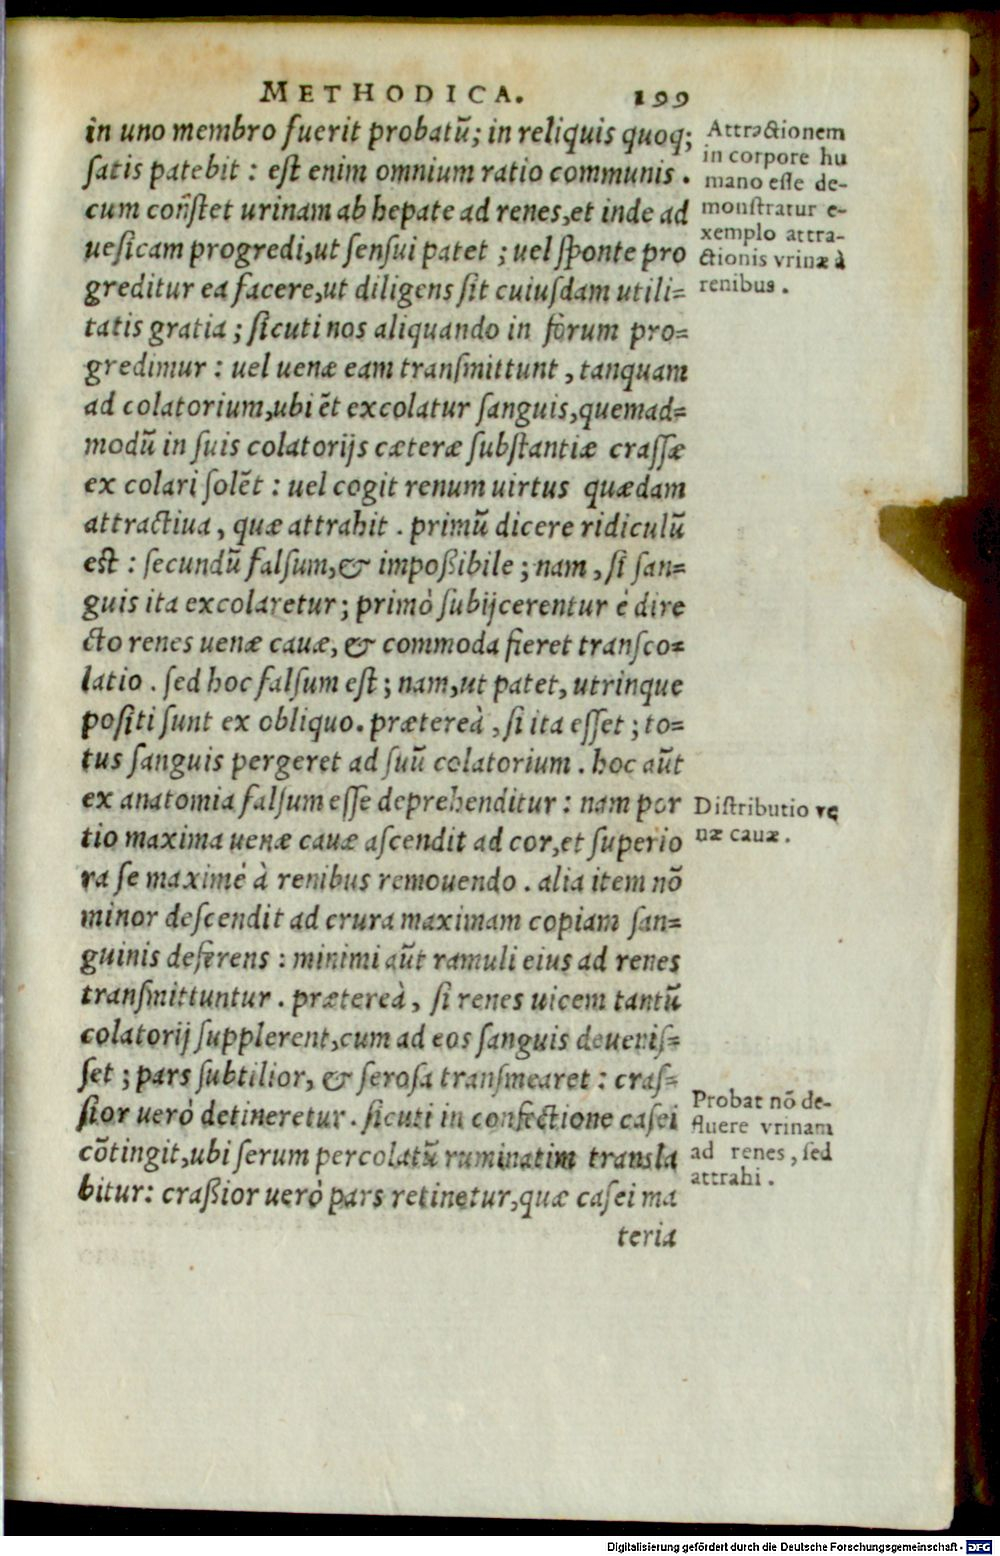 METHODICA. 199
in uno membro fuerit probatũ; in reliquis quoq;
satis patebit : est enim omnium ratio communis .
cum cõstet urinam ab hepate ad renes, et inde ad
uesicam progredi, ut sensui patet ; uel sponte pro
greditur ea facere, ut diligens sit cuiusdam utili=
tatis gratia ; sicuti nos aliquando in forum pro=
gredimur : uel uenæ eam transmittunt , tanquam
ad colatorium, ubi ẽt excolatur sanguis, quemad=
modũ in suis colatorijs cæteræ substantiæ crassæ
ex colari solẽt : uel cogit renum uirtus quædam
attractiua , quæ attrahit . primũ dicere ridiculũ
est : secundũ falsum, & impoßibile ; nam , si san=
guis ita excolaretur ; primò subijcerentur è dire
cto renes uenæ cauæ, & commoda fieret transco=
latio . sed hoc falsum est ; nam, ut patet, utrinque
positi sunt ex obliquo. prætereà , si ita esset ; to=
tus sanguis pergeret ad suũ colatorium . hoc aũt
ex anatomia falsum esse deprehenditur : nam por
tio maxima uenæ cauæ ascendit ad cor, et superio
ra se maximè à renibus remouendo . alia item nõ
minor descendit ad crura maximam copiam san=
guinis deferens : minimi aũt ramuli eius ad renes
transmittuntur . prætereà , si renes uicem tantũ
colatorij supplerent, cum ad eos sanguis deuenis=
set ; pars subtilior, & serosa transmearet : cras=
sior uerò detineretur . sicuti in confectione casei
cõtingit, ubi serum percolatũ ruminatim transla
bitur: craßior uerò pars retinetur, quæ casei ma
teria
Attractionem
in corpore hu
mano esse de-
monstratur e-
xemplo attra-
ctionis vrinæ à
renibus .
Distributio ve
næ cauæ .
Probat nõ de-
fluere vrinam
ad renes , sed
attrahi .
Digitalisierung gefördert durch die Deutsche Forschungsgemeinschaft - DFG